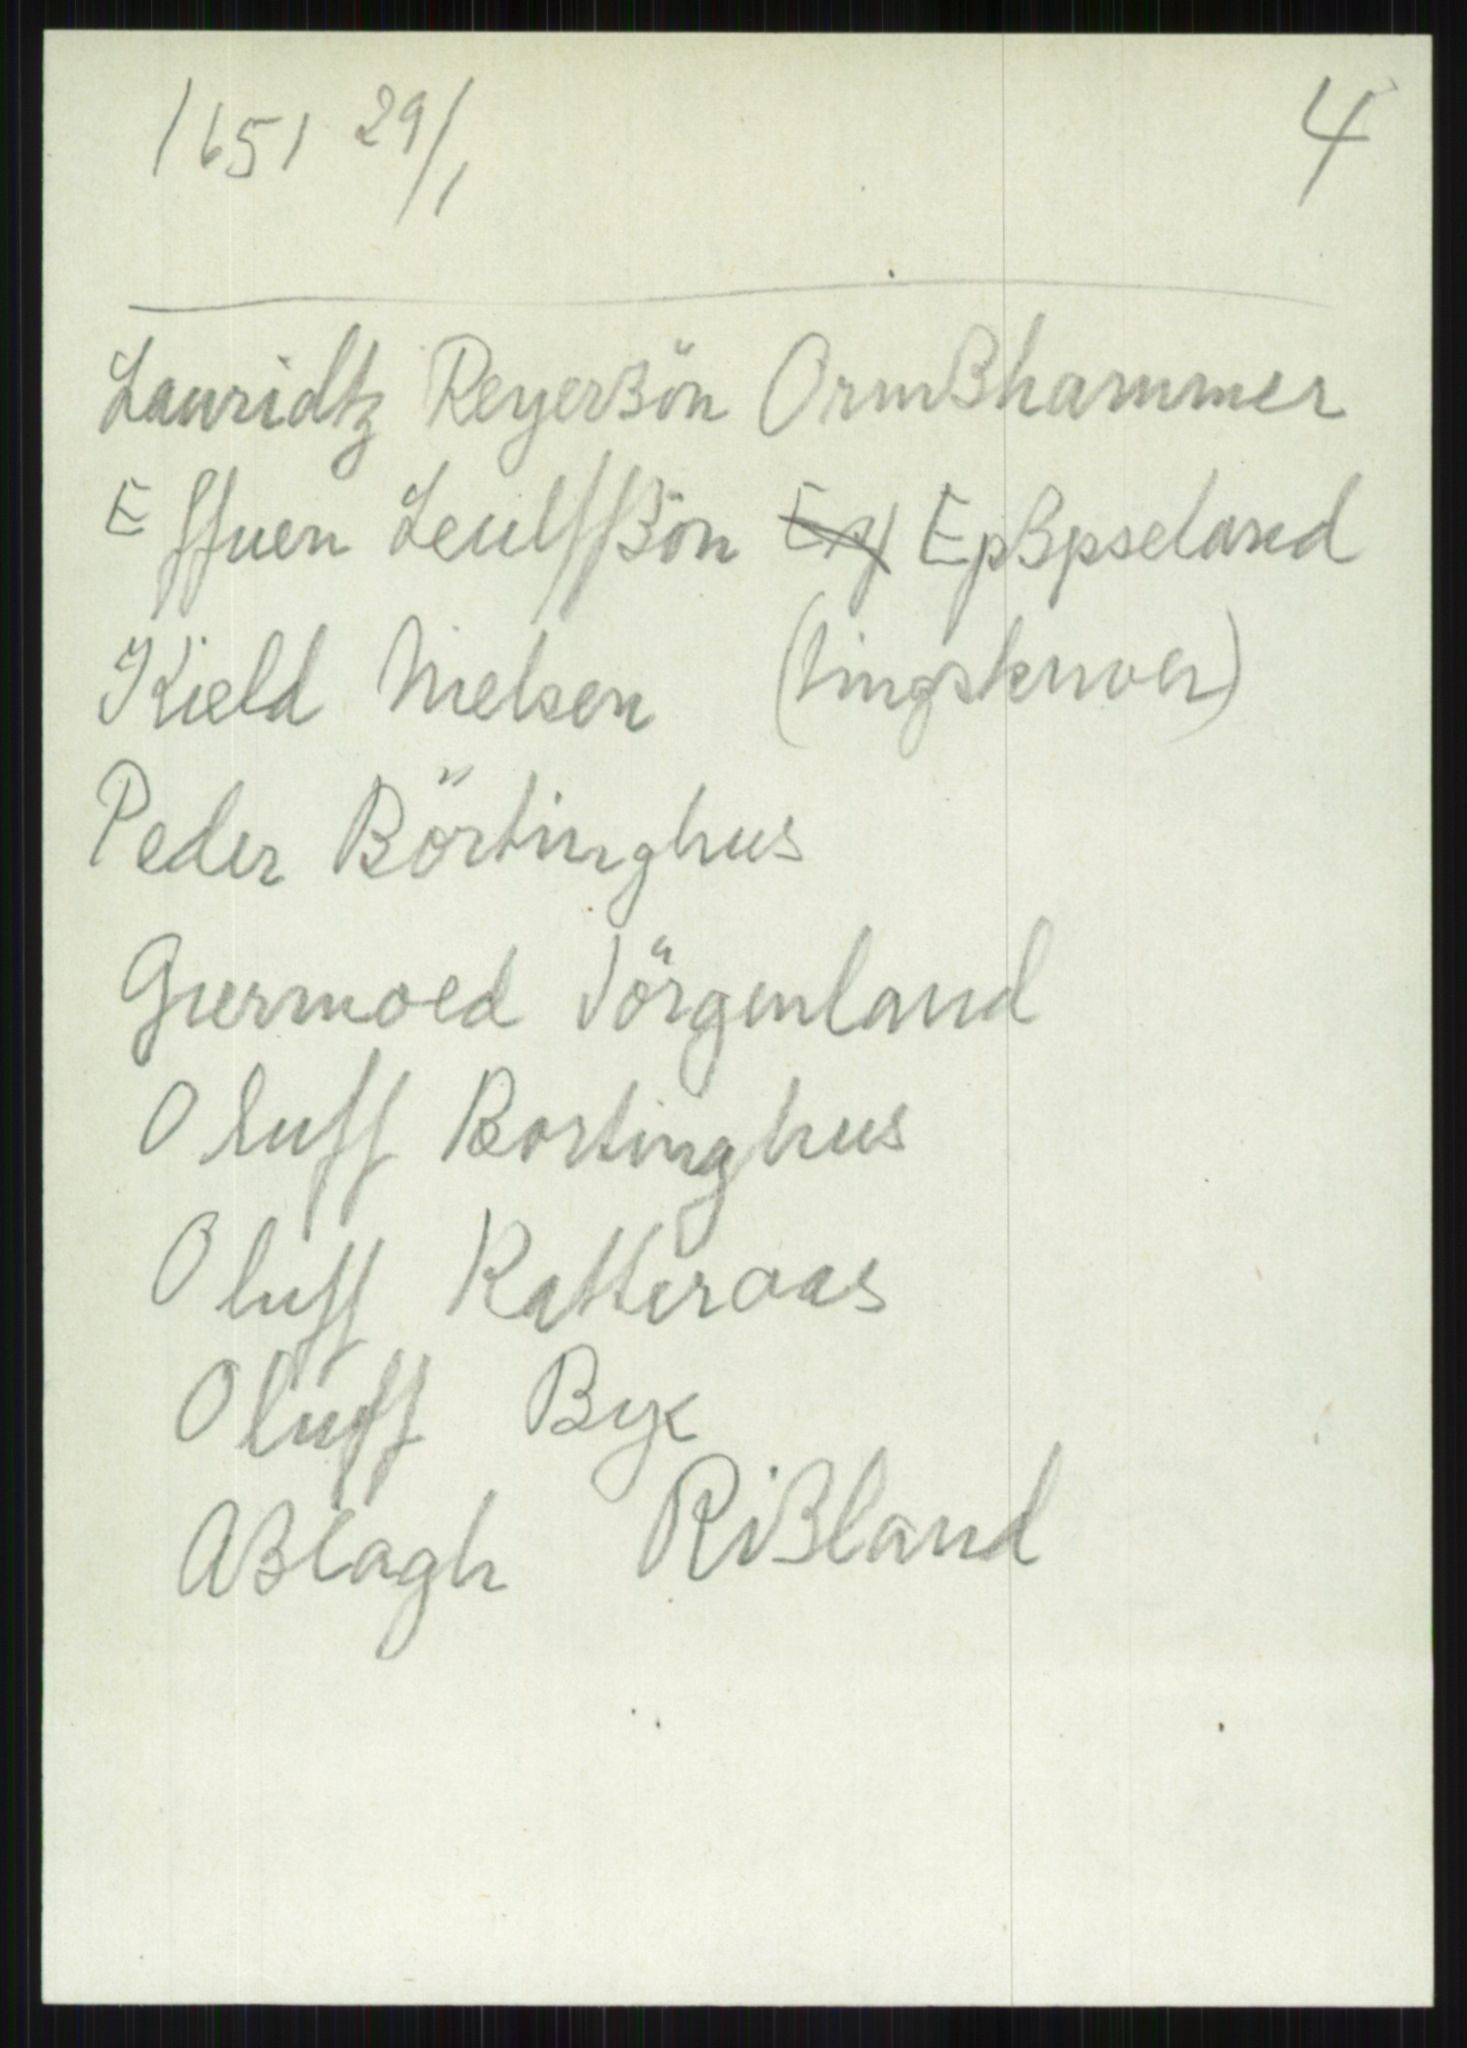 1651 29/1 4
Lauridtz Reyerßön Ormßhammer
Effuen Leulffßön E̶y̶ Epßpseland
Kield Nielsen (tingskriver)
Peder Börtinghus
Giermoed Jörgenland
Oluff Bortinghus
Oluff Katteraas
Oluff Bye
Aßlagh Rißland